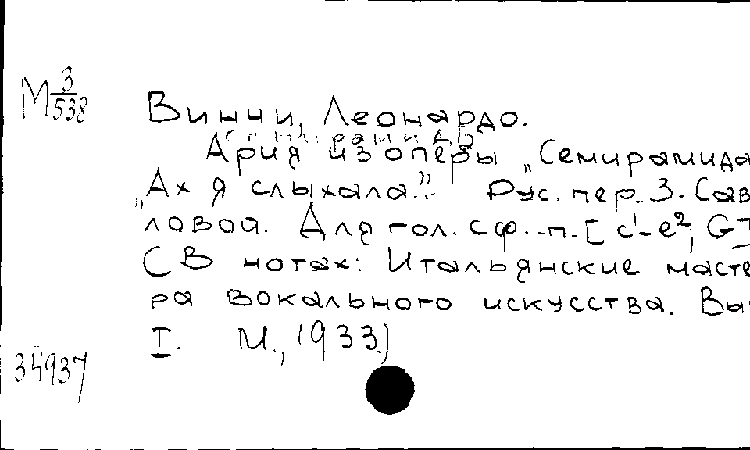 М 3/538
Винчи, Леонардо.
Ария из оперы „Семирамида
„Ах я слыхала..” Рус. пер. З. Сав
ловой. Для гол. с ф.-п. [c¹-e², G
(В нотах: Итальянские масте
ра вокального искусства. Вы
I. М., 1933)
34937